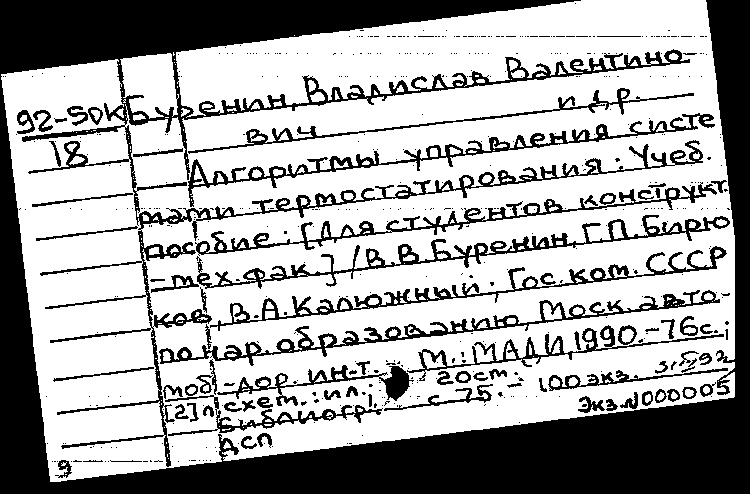 92-5DK Буренин, Владислав Валентино-
18 вич и др.
Алгоритмы управления систе
мами термостатирования: Учеб.
пособие: [Для студентов конструкт.
-мех. фак.] / В.В. Буренин, Г.П. Бирю
ков, В.А. Калюжный; Гос. ком. СССР
по нар. образованию, Моск. авто-
моб.-дор. ин-т. М.: МАДИ, 1990.-76с.;
[2]л схем.: ил.; 20см.- 100 экз.
Библиогр.: с 75.
Экз.N000005
ДСП
9